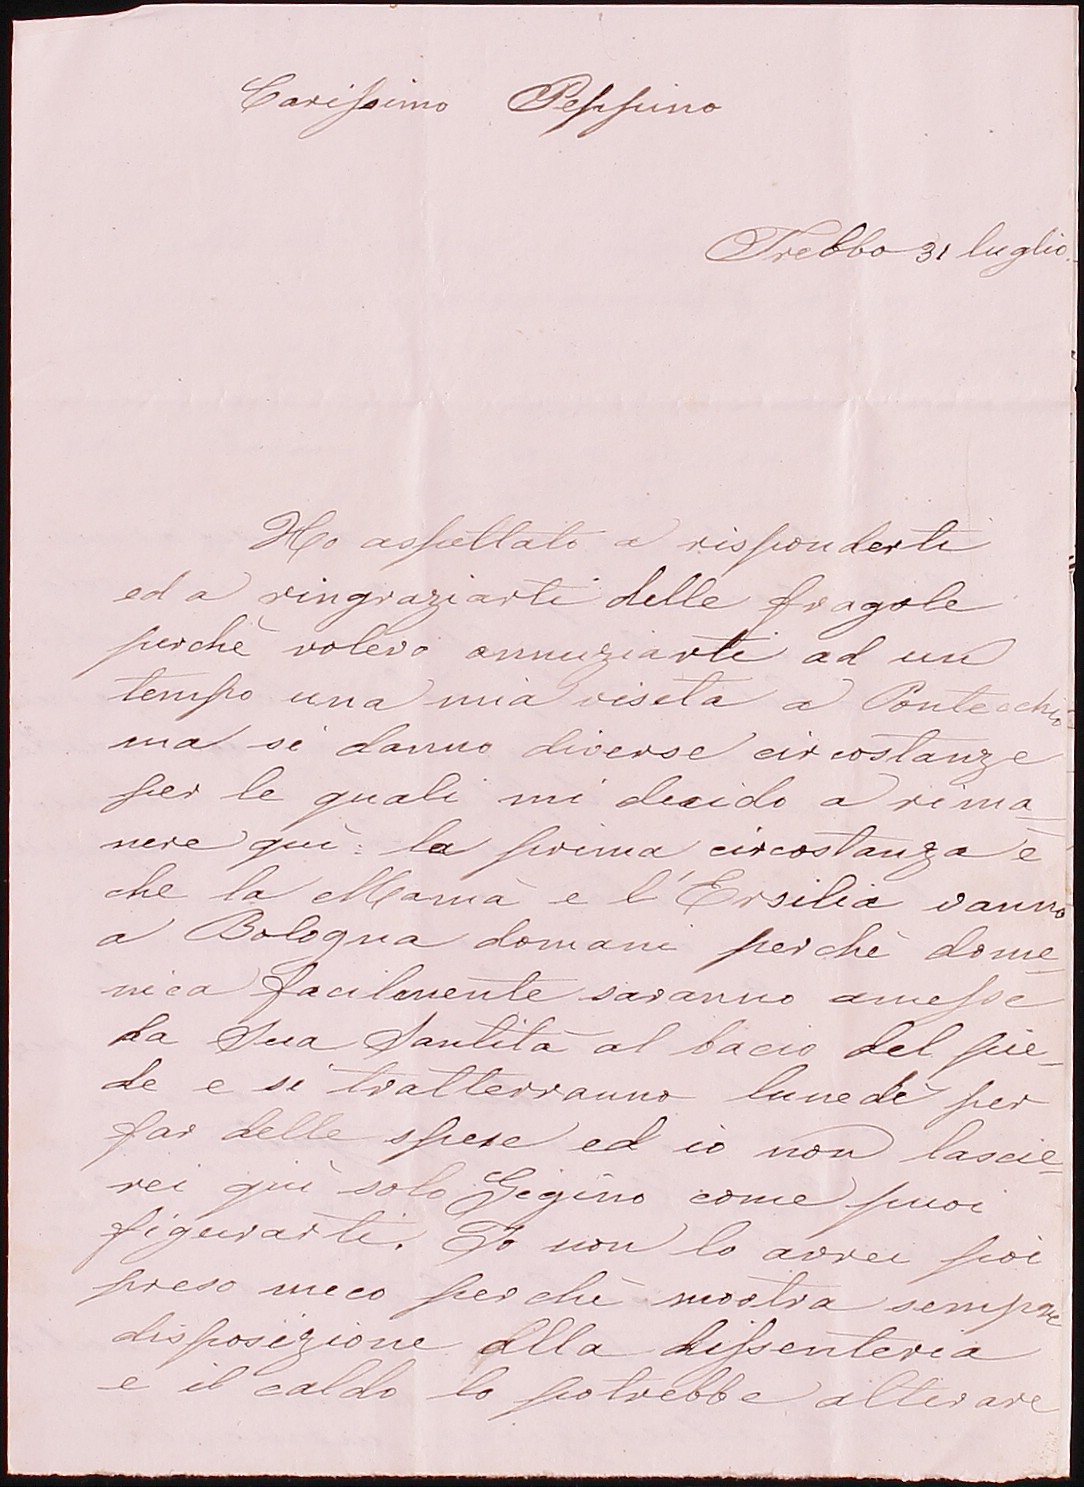 Carissimo Peppino
Trebbo 31 luglio.
Ho aspettato a risponderti
ed a ringraziarti delle fragole
perchè volevo annunziarti ad un
tempo una mia visita a Pontecchio
ma si danno diverse circostanze
per le quali mi decido a rima=
nere quì: la prima circostanza è
che la Mamà e l'Ersilia vanno
a Bologna domani perchè dome=
nica facilmente saranno amesse
da Sua Santità al bacio del pie=
de e si tratterranno lunedì per
far delle spese ed io non lascie=
rei quì solo Gigino come puoi
figurarti. Io non lo avrei poi
preso meco perchè mostra sempre
disposizione alla dissenteria
e il caldo lo potrebbe alterare